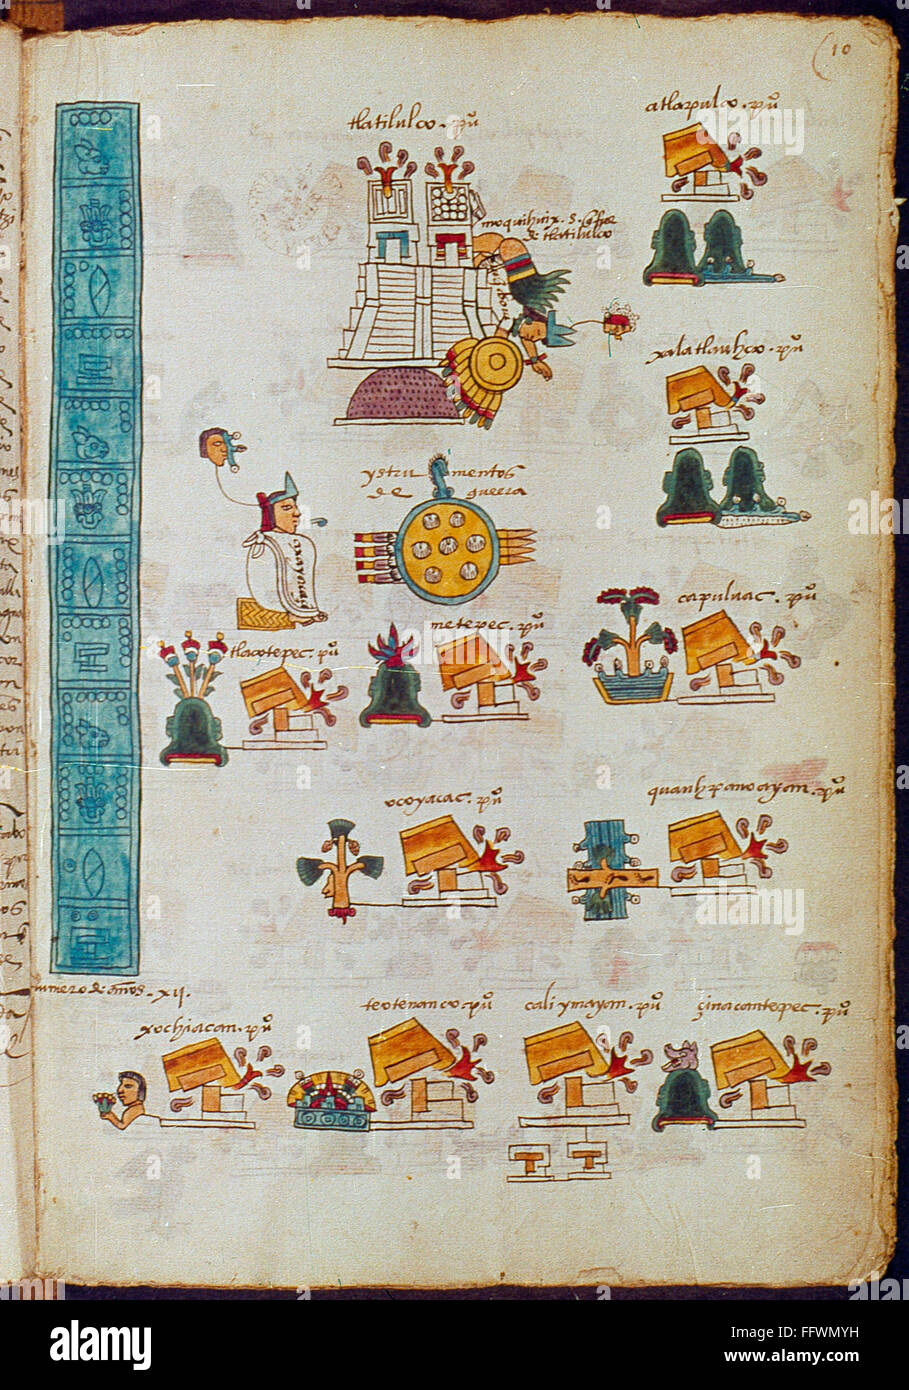 10
tlatilulco. pu°
atlapulco. pu°
moquihuix. S.
de tlatilulco
xalatlauhco. pu°
ystrumentos
de guerra
axayacaçi
capuluac. pu°
metepec. pu°
tlacotepec. pu°
ocoyacac. pu°
quauhpanoayan. pu°
numero de años. xij.
xochiacan. pu°
teotenanco. pu°
cali ymayan. pu°
çinacantepec. pu°
alamy stock photo
alamy
Image ID: FFWMYH
www.alamy.com